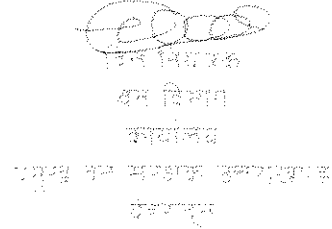 वित्त नियंत्रक
वन विभाग
कार्यालय
प्रमुख वन संरक्षक उत्तराखण्ड
देहरादून